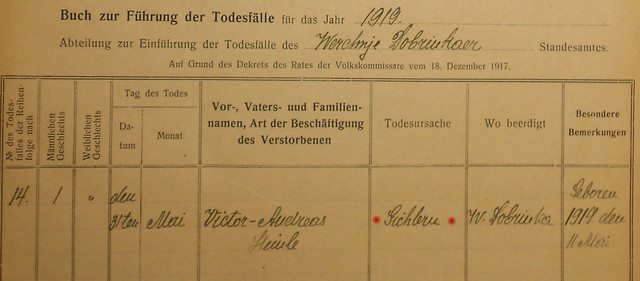 Buch zur Führung der Todesfälle für das Jahr 1919.
Abteilung zur Einführung der Todesfälle des Werchnje Dobrinkaer Standesamtes.
Auf Grund des Dekrets des Rates der Volkskommissare vom 18. Dezember 1917.
№ des Todes-
falles der Reihen-
folge nach
Männlichen
Geschlechts
Weiblichen
Geschlechts
Tag des Todes
Da-
tum
Monat
Vor-, Vaters- und Familien-
namen, Art der Beschäftigung
des Verstorbenen
Todesursache
Wo beerdigt
Besondere
Bemerkungen
14. 1 " den
31ten Mai
Victor-Andreas
Steinle
Gichtern
W. Dobrinka
Geboren
1919 den
11 Mai